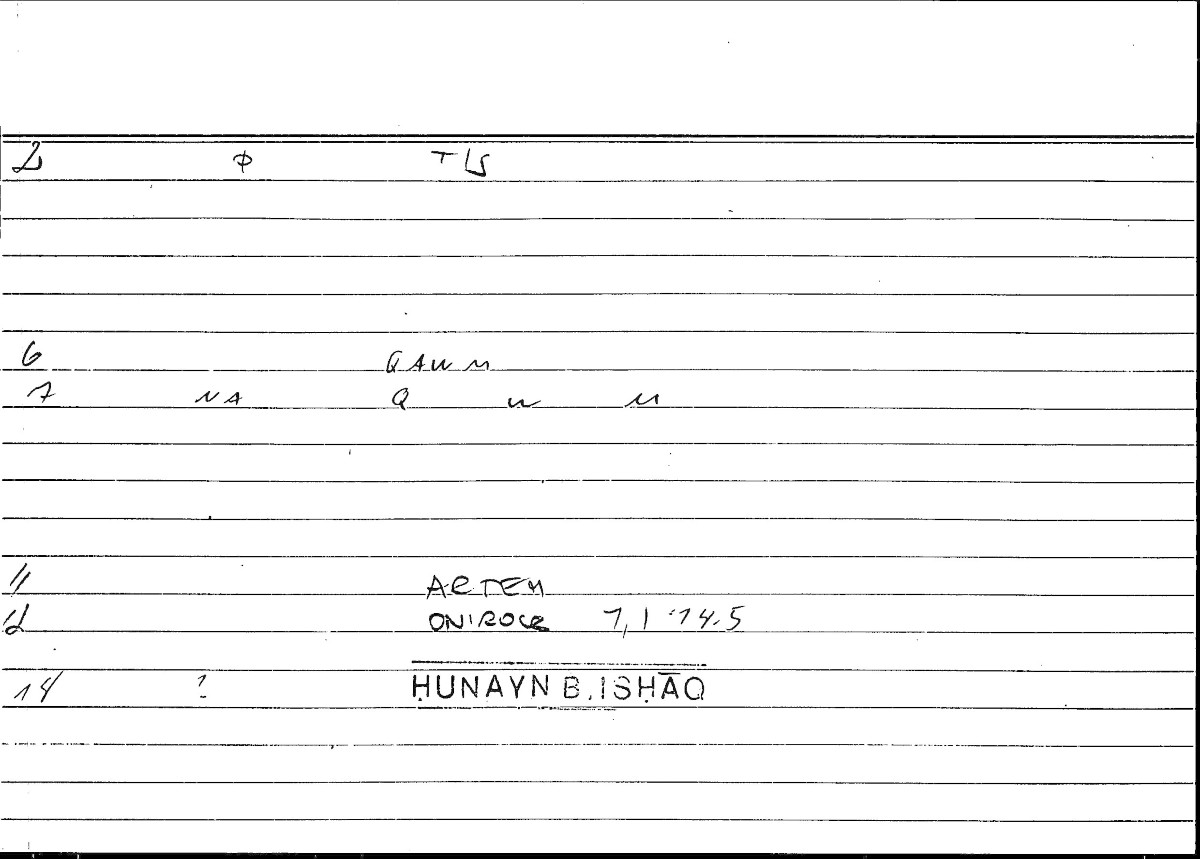 2 φ TLS
6 QAWM
7 NA Q W M
11 ARTEM
12 ONIROCR 7,1 14.5
14 ? ḤUNAYN B. ISḤĀQ